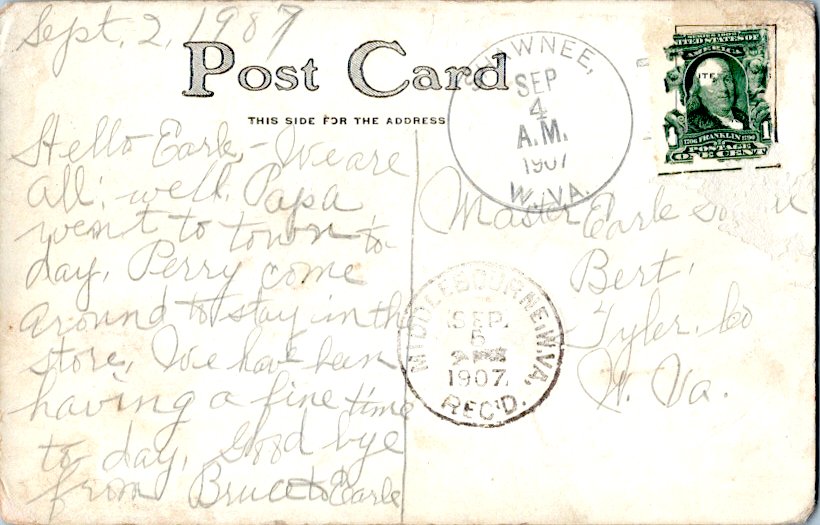 Sept. 2, 1987
Post Card
THIS SIDE FOR THE ADDRESS
SHAWNEE,
SEP
4
A.M.
1907
W. VA.
SERIES 1902
UNITED STATES OF
AMERICA
1706 FRANKLIN 1790
1 POSTAGE 1
ONE CENT
Hello Earle,- We are
all: well. Papa
went to town to-
day, Perry come
around to stay in the
store, We have been
having a fine time
to day, Good bye
from Bruce to Earle
Master Earle
Bert,
Tyler, Co
W. Va.
MIDDLEBOURNE, W.VA.
SEP.
5
1907.
REC'D.